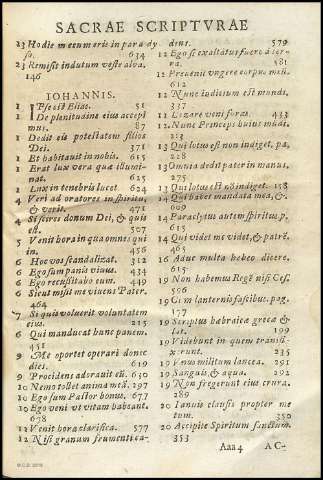 SACRAE SCRIPTVRAE
23 Hodie mecum eris in parady
so. 634
23 Remisit indutum veste alva.
146
IOHANNIS.
1 IPse est Elias. 51
1 De plenitudine eius accepi
mus. 87
1 Dedit eis potestatem filios
Dei. 371
1 Et habitauit in nobis. 615
1 Erat lux vera quæ illumi-
nat. 625
1 Lux in tenebris lucet 624
4 Veri adoratores in spiritu,
& verit. 471
4 Si scires donum Dei, & quis
est. 507
5 Venit hora in qua omnes qui
in. 456
6 Hoc vos scandalizat. 312
6 Ego sum panis viuus. 434
6 Ego recusitabo eum. 449
6 Sicut misit me viuens Pater.
464
7 Si quis voluerit voluntatem
eius. 215
6 Qui manducat hunc panem.
451
9 Me oportet operari donec
dies. 619
9 Procidens adorauit eū. 630
10 Nemo tollet animā mēā. 297
10 Ego sum Pastor bonus. 677
10 Ego veni vt vitam habeant.
678
11 Venit hora clarifica. 577
12 Nisi granum frumenti ca-
dens. 579
12 Ego si exaltatus fuero à ter-
ra. 581
12 Preuenit vngere corpus meū.
612
12 Nunc iudicium est mundi.
337
11 Lazare veni foras. 433
12 Nunc Princeps huius mūdi.
337
13 Qui lotus est non indiget.
228
13 Omnia dedit pater in manus.
275
13 Qui lotus est nō indiget. 158
14 Qui habet mandata mea, &.
609
14 Paraclytus autem spiritus.
615
14 Qui videt me videt, & patrē.
463
16 Adue multa hebeo dicere.
615
19 Non habemus Regē nisi Ces.
596
19 Cum lanternis facibus.
177
19 Scriptus hæbraice græca &
lat. 199
19 Videbunt in quem transfi-
xerunt. 235
19 Vnus militum lancea. 291
19 Sanguis & aqua. 292
19 Non fregerunt eius crura.
289
20 Ianuis clausis propter me
tum. 350
20 Accipite Spiritum sanctum.
353
Aaa 4 A C-